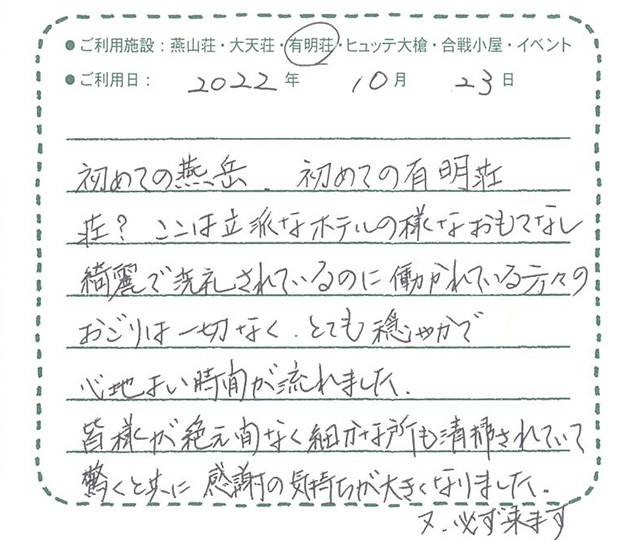 ●ご利用施設：燕山荘・大天荘・有明荘・ヒュッテ大槍・合戦小屋・イベント
●ご利用日： 2022年 10月 23日
初めての燕岳. 初めての有明荘
荘? ここは立派なホテルの様なおもてなし
綺麗で洗礼されているのに働かれている方々の
おごりは一切なく. とても穏やかで
心地よい時間が流れました.
皆様が絶え間なく細かな所も清掃されていて
驚くと共に感謝の気持ちが大きくなりました.
又.必ず来ます